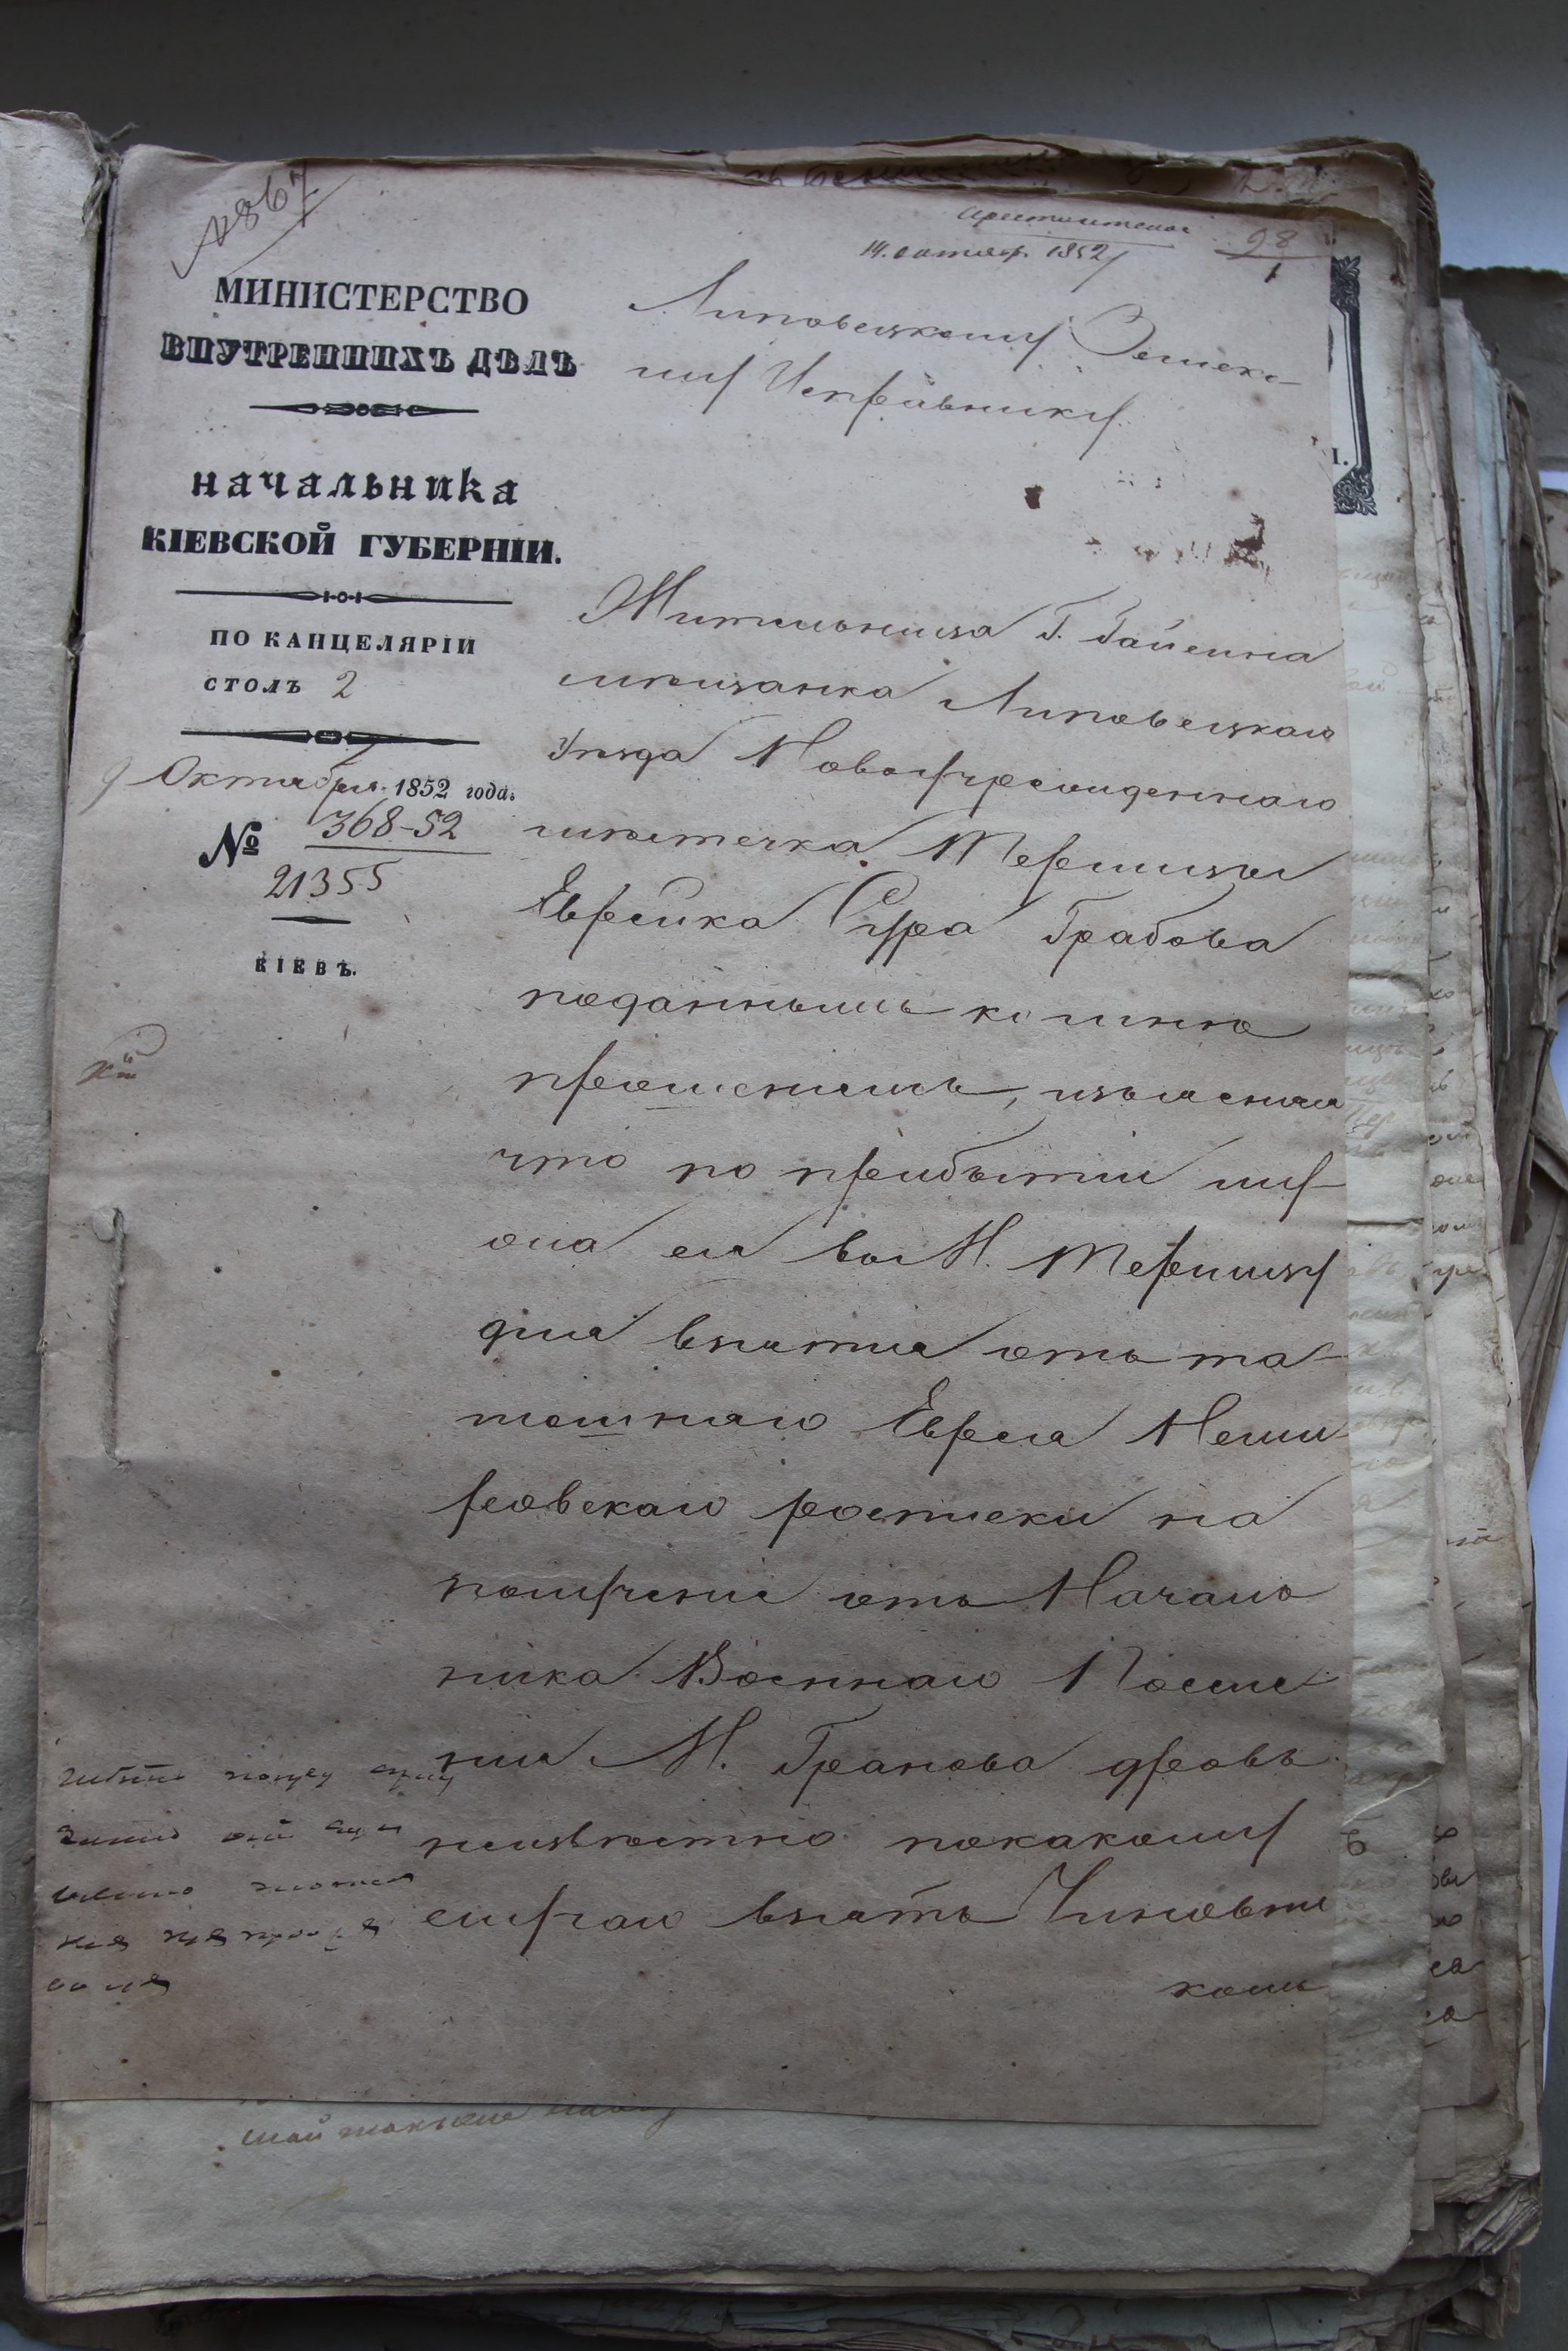 4867
98
14. октябр. 1852
МИНИСТЕРСТВО
ВНУТРЕННИХЪ ДѢЛЪ
НАЧАЛЬНИКА
КІЕВСКОЙ ГУБЕРНІИ.
ПО КАНЦЕЛЯРІИ
СТОЛЪ 2
9 Октября 1852 года.
№ 368-52
21355
КІЕВЪ.
Липовецкому Земско-
му Исправнику.
Жительница Г. Гайсина
мѣщанка Липовецкаго
Уѣзда Новоучрежденнаго
мѣстечка Терлицы
Еврейка Сура Грабова
поданнымъ ко мнѣ
прошеніемъ, изъяснила
что по прибытіи му-
жа ея въ М. Терлицу
для взятія отъ та-
мошняго Еврея Неми
ровскаго росписки на
полученіе отъ Началь
ника Военнаго Поселе-
нія М. Гранова дровъ
неизвѣстно по какому
случаю взятъ Чиновни
комъ